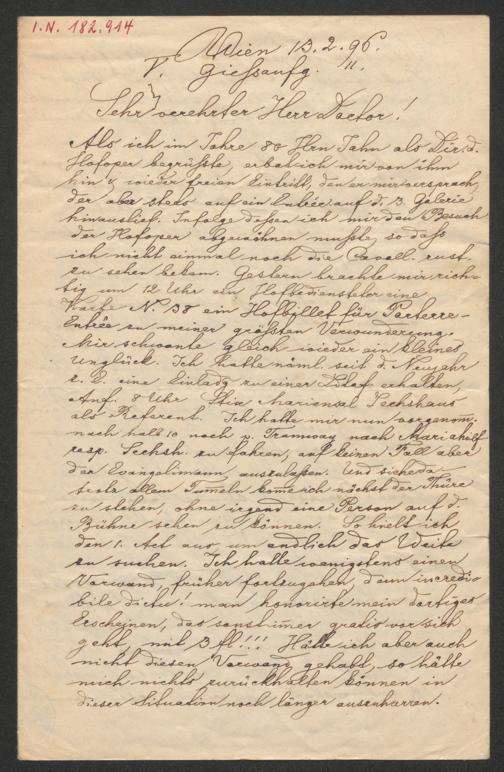 I.N. 182.914
Wien 13.2.96.
V. Gießaufg. 11.
Sehr verehrter Herr Doctor!
Als ich im Jahre 80 Hrn Jahn als Dir. d.
Hofoper begrüßte, erbat ich mir von ihm
hin & wieder freien Eintritt, den er mir versprach,
der aber stets auf ein Entrée auf d. 3. Galerie
hinauslief. Infolge dessen ich mir den Besuch
der Hofoper abgewöhnen mußte, so daß
ich nicht einmal noch die Cavall. rust.
zu sehen bekam. Gestern brachte mir rich-
tig um 12 Uhr ein Hofbediensteter eine
Karte No. 138 ein Hofbillet für Parterre-
Entrée zu meiner größten Verwunderung.
Mir schwante gleich wieder ein kleines
Unglück. Ich hatte näml. seit d. Neujahr
z. 2. eine Einladg zu einer erhalten,
Anf. 8 Uhr Mariensal Sechshaus
als Referent. Ich hatte mir nun vorgenom.
nach halb 10 noch p. Tramway nach Mariahilf
resp. Sechsh. zu fahren, auf keinen Fall aber
den Evangelimann auszulaßen. Und siehe da
trotz allem Tumeln kome ich nächst der Thüre
zu stehen, ohne irgend eine Person auf d.
Bühne sehen zu können. So hielt ich
den 1. Act aus um endlich das Weite
zu suchen. Ich hatte wenigstens einen
Vorwand, früher fortzugehen, denn incredi-
bile dictu! man honorirte mein dortiges
Erscheinen, das sonst imer gratis vor sich
geht, mit 3 fl!!! Hätte ich aber auch
nicht diesen Vorwand gehabt, so hätte
mich nichts zurückhalten können in
dieser Situation noch länger auszuharren.